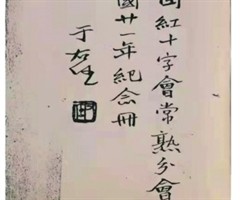 國紅十字會常熟分會
國廿一年紀念冊
于右任